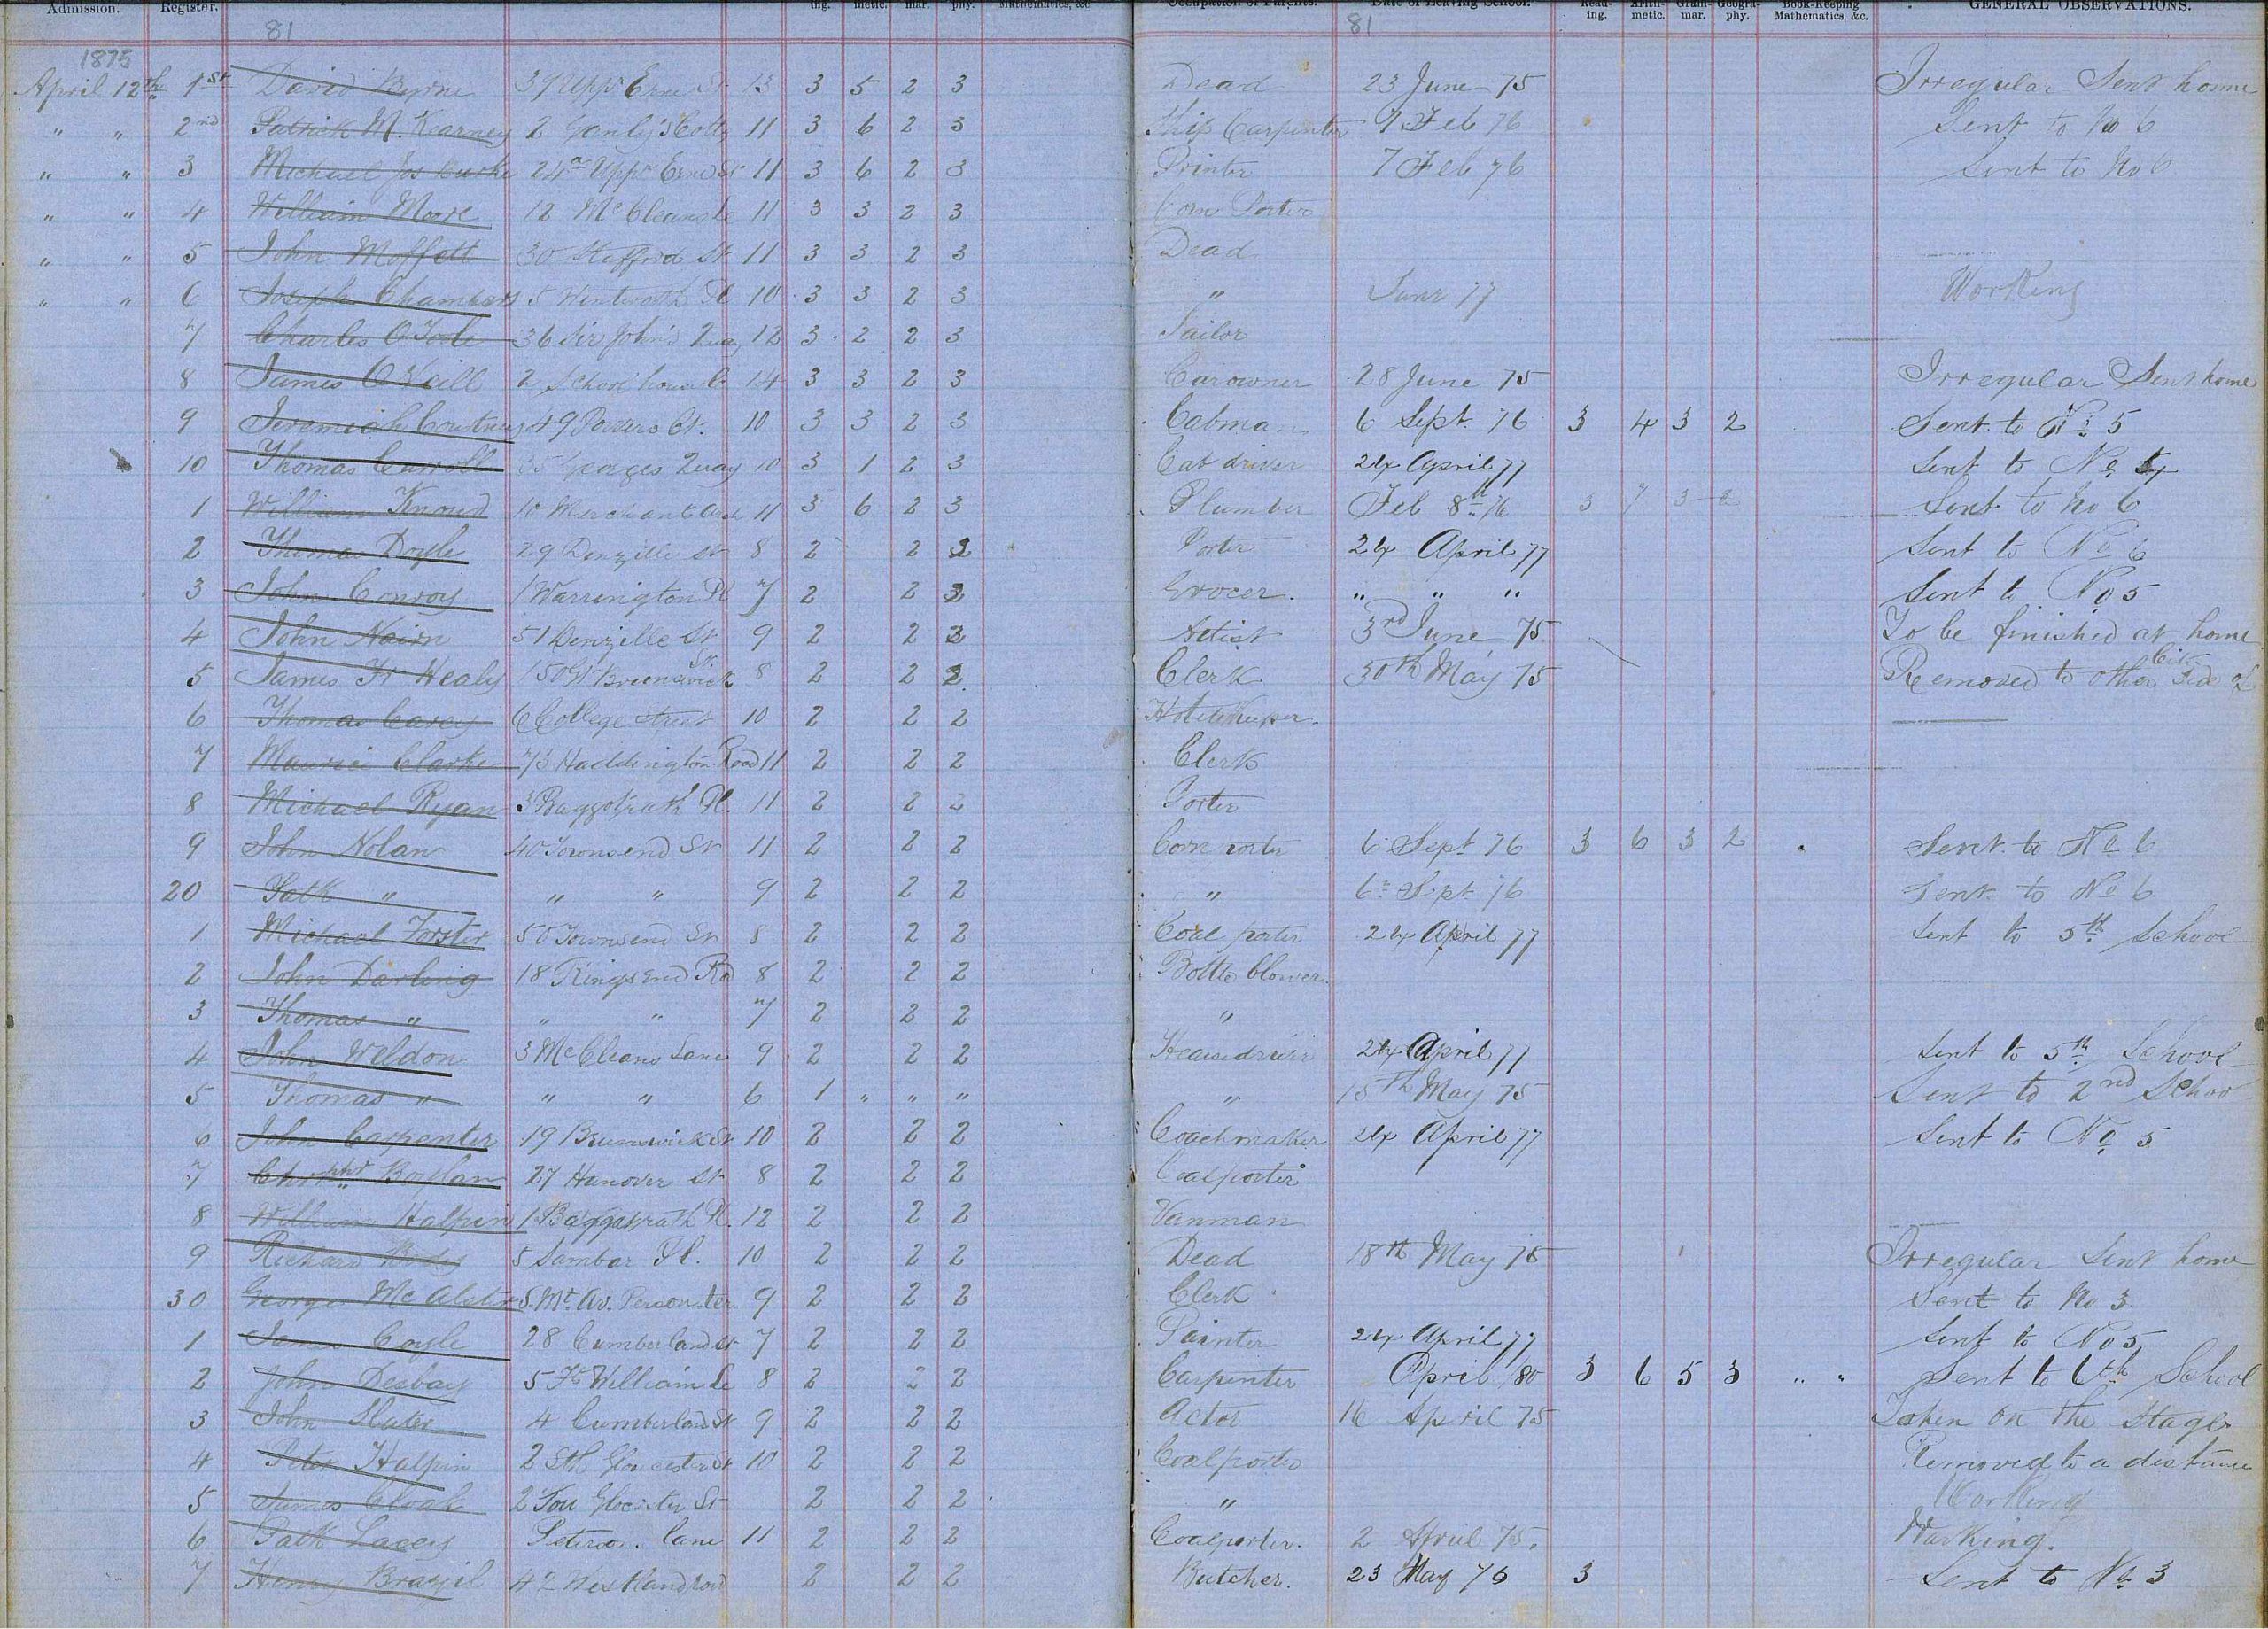 Admission. Register. ing. metic. mar. phy. Mathematics, &c. Occupation of Parents. Date of Leaving School. Read-ing. Arith-metic. Gram-mar. Geogra-phy. Book-Keeping Mathematics, &c. GENERAL OBSERVATIONS.
81 81
1875
April 12th 1st David Byrne 37 Uppr Erne St 13 3 5 2 3 Dead 23 June 75 Irregular Sent home
" " 2nd Patrick M. Kearney 2 Ganly's Cottg 11 3 6 2 3 Ship Carpenter 7 Feb 76 Sent to No 6
" " 3 Michael Jos Burke 24 Uppr Erne St 11 3 6 2 3 Printer 7 Feb 76 Sent to No 6
" " 4 William Moore 12 McCleans Le 11 3 3 2 3 Corn Porter
" " 5 John Moffett 30 Stafford St 11 3 3 2 3 Dead
" " 6 Joseph Chambers 5 Wentworth Pl 10 3 3 2 3 " June 77 Working
7 Charles O'Toole 36 Sir John's Quay 12 3 2 2 3 Sailor
8 James O'Neill 2 School house 14 3 3 2 3 Carowner 28 June 75 Irregular Sent home
9 Jeremiah Courtney 49 Powers Ct. 10 3 3 2 3 Cabman 6 Sept. 76 3 4 3 2 Sent to No 5
10 Thomas Carroll 35 Georges Quay 10 3 1 2 3 Cab driver 24 April 77 Sent to No
1 William Knowd 10 Merchant 11 3 6 2 3 Plumber Feb 8th 76 3 7 3 2 Sent to No 6
2 Thomas Doyle 29 Denzille St 8 2 2 2 Porter 24 April 77 Sent to No 6
3 John Conroy 1 Warrington Pl 7 2 2 2 Grocer. " " " Sent to No 5
4 John Nairn 51 Denzille St 9 2 2 2 Artist 3rd June 75 To be finished at home
5 James Fr Healy 150 Gt Brunswick St. 8 2 2 2 Clerk 30th May 75 Removed to other side of City
6 Thomas Carey 6 College Street 10 2 2 2 Hotelkeeper.
7 Maurice Clarke 73 Haddington Road 11 2 2 2 Clerk
8 Michael Ryan 3 Baggotrath Pl. 11 2 2 2 Porter
9 John Nolan 40 Townsend St 11 2 2 2 Corn porter 6 Sept 76 3 6 3 2 Sent to No 6
20 Patk " " " 9 2 2 2 " 6 Sept 76 Sent to No 6
1 Michael Forster 50 Townsend St 8 2 2 2 Coal porter 24 April 77 Sent to 5th School
2 John Darling 18 Ringsend Rd 8 2 2 2 Bottle blower
3 Thomas " " " 7 2 2 2 "
4 John Weldon 3 McCleans Lane 9 2 2 2 Hearsedriver 24 April 77 Sent to 5th School
5 Thomas " " " 6 1 " " " " 15th May 75 Sent to 2nd Schoo
6 John Carpenter 19 Brunswick St 10 2 2 2 Coachmaker 24 April 77 Sent to No 5
7 Chrisphr Boylan 27 Hanover St 8 2 2 2 Coalporter
8 William Halpin 1 Baggotrath Pl. 12 2 2 2 Vanman
9 Richard Body 5 Pl. 10 2 2 2 Dead 18th May 75 Irregular Sent home
30 George McAlister 5 Mt. Av. 9 2 2 2 Clerk Sent to No 3
1 James Coyle 28 Cumberland St 7 2 2 2 Painter 24 April 77 Sent to No 5
2 John Desbay 5 Ft William Le 8 2 2 2 Carpenter April /80 3 6 5 3 " " Sent to 6th School
3 John Slater 4 Cumberland St 9 2 2 2 Actor 16 April 75 Taken on the Stage
4 Peter Halpin 2 Sth Gloucester St 10 2 2 2 Coalporter Removed to a distance
5 James 2 Sou Glocester St 2 2 2 " Working
6 Patk Lacey Peterson. Lane 11 2 2 2 Coalporter. 2 April 75. Working.
7 Henry Brazil 42 Westland row 2 2 2 Butcher. 23 May 76 3 Sent to No 3